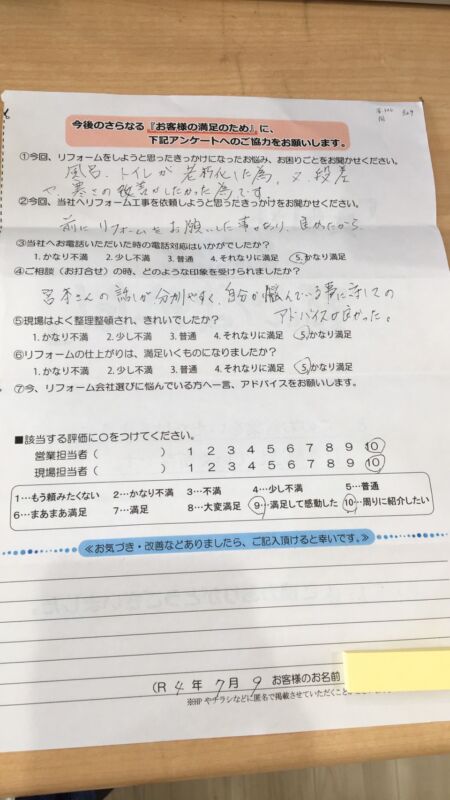 今後のさらなる『お客様の満足のため』に、
下記アンケートへのご協力をお願いします。
①今回、リフォームをしようと思ったきっかけになったお悩み、お困りごとをお聞かせください。
風呂、トイレが老朽化した為、又、段差
や、寒さの改善がしたかった為です。
②今回、当社へリフォーム工事を依頼しようと思ったきっかけをお聞かせください。
前にリフォームをお願いした事があり、良かったから
③当社へお電話いただいた時の電話対応はいかがでしたか?
1.かなり不満 2.少し不満 3.普通 4.それなりに満足 5.かなり満足
④ご相談(お打合せ)の時、どのような印象を受けられましたか?
さんの話しが分かりやすく、自分が悩んでいる事に対しての
アドバイスが良かった。
⑤現場はよく整理整頓され、きれいでしたか?
1.かなり不満 2.少し不満 3.普通 4.それなりに満足 5.かなり満足
⑥リフォームの仕上がりは、満足いくものになりましたか?
1.かなり不満 2.少し不満 3.普通 4.それなりに満足 5.かなり満足
⑦今、リフォーム会社選びに悩んでいる方へ一言、アドバイスをお願いします。
■該当する評価に○をつけてください。
営業担当者( ) 1 2 3 4 5 6 7 8 9 10
現場担当者( ) 1 2 3 4 5 6 7 8 9 10
1…もう頼みたくない 2…かなり不満 3…不満 4…少し不満 5…普通
6…まあまあ満足 7…満足 8…大変満足 9…満足して感動した 10…周りに紹介したい
≪お気づき・改善などありましたら、ご記入頂けると幸いです。≫
(R 4 年 7 月 9 お客様のお名前
※HPやチラシなどに匿名で掲載させていただくこと